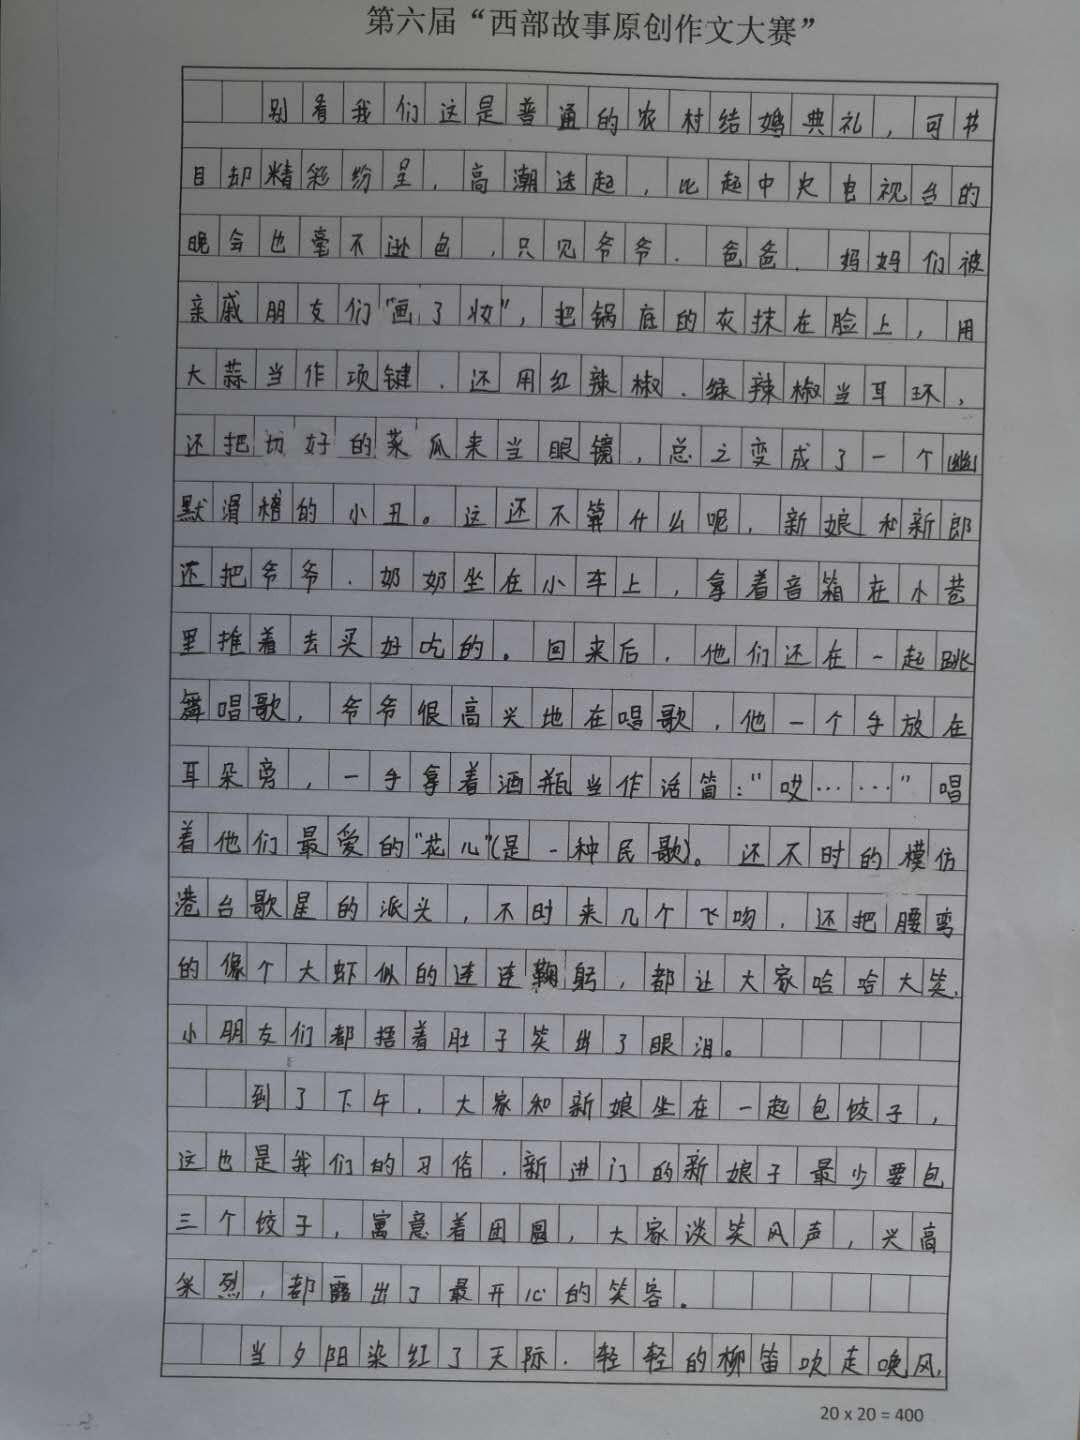 第六届“西部故事原创作文大赛”
别看我们这是普通的农村结婚典礼，可节
目却精彩纷呈，高潮迭起，比起中央电视台的
晚会也毫不逊色，只见爷爷、爸爸、妈妈们被
亲戚朋友们“画了妆”，把锅底的灰抹在脸上，用
大蒜当作项键、还用红辣椒、绿辣椒当耳环，
还把切好的菜瓜来当眼镜，总之变成了一个幽
默滑稽的小丑。这还不算什么呢，新娘和新郎
还把爷爷、奶奶坐在小车上，拿着音箱在小巷
里推着去买好吃的。回来后，他们还在一起跳
舞唱歌，爷爷很高兴地在唱歌，他一个手放在
耳朵旁，一手拿着酒瓶当作话筒：“哎……”唱
着他们最爱的“花儿”（是一种民歌）。还不时的模仿
港台歌星的派头，不时来几个飞吻，还把腰弯
的像个大虾似的连连鞠躬，都让大家哈哈大笑，
小朋友们都捂着肚子笑出了眼泪。
到了下午，大家和新娘坐在一起包饺子，
这也是我们的习俗，新进门的新娘子最少要包
三个饺子，寓意着团圆，大家谈笑风声，兴高
采烈，都露出了最开心的笑容。
当夕阳染红了天际，轻轻的柳笛吹走晚风，
20 x 20 = 400